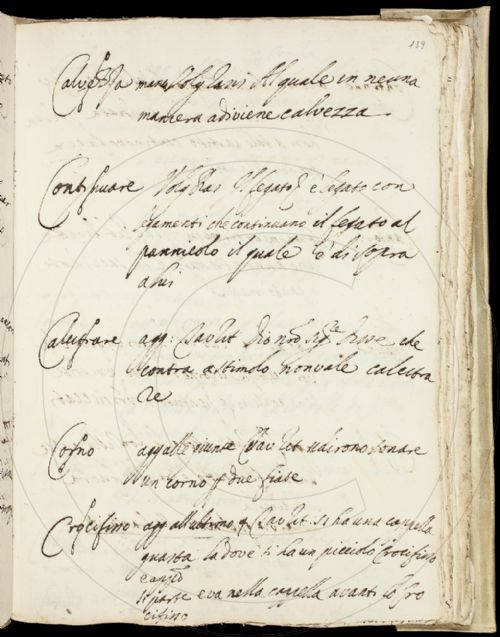 139
Calvezza manu, Volg Rasis Al quale in neuna
maniera adiviene calvezza
Continuare Volg Ras Il fegato è legato con
legamenti che continuano il fegato al
pannicolo il quale è di sopra
a lui
Calcitrare agg: Cav Let Dio nro sig.re disse che
contra a stimolo non vale calcitra
re
Corno agg alle giunte Cav Let udirono sonare
un corno p due fiate
Crocifisso agg all ultimo § Cav Let si ha una cappella
guasta la dove si ha un picciolo Crocifisso
si parte e va nella cappella avanti lo Cro
cifisso